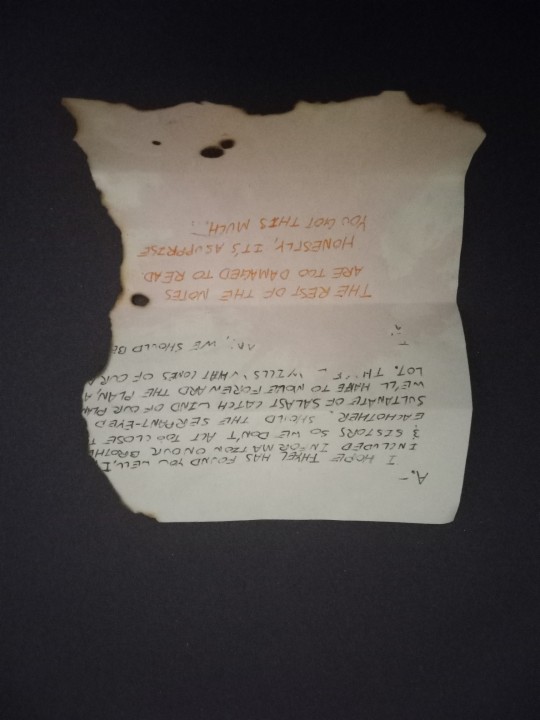 A.-
I HOPE THYEL HAS FOUND YOU WELL. I
INCLUDED INFORMATION ON OUR BROTHE
& SISTORS SO WE DON'T ACT TOO CLOSE T
EACHOTHER. SHOULD THE SERPANT-EYED
SULTANATE OF SALAST CATCH WIND OF OUR PLAN
WE'LL HAVE TO MOVE FOREWARD THE PLAN, A
LOT. WILLS WHAT COMES OF OUR
WE SHOULD BE
THE REST OF THE NOTES
ARE TOO DAMAGED TO READ.
HONESTLY, IT'S A SUPPRISE
YOU GOT THIS MUCH...